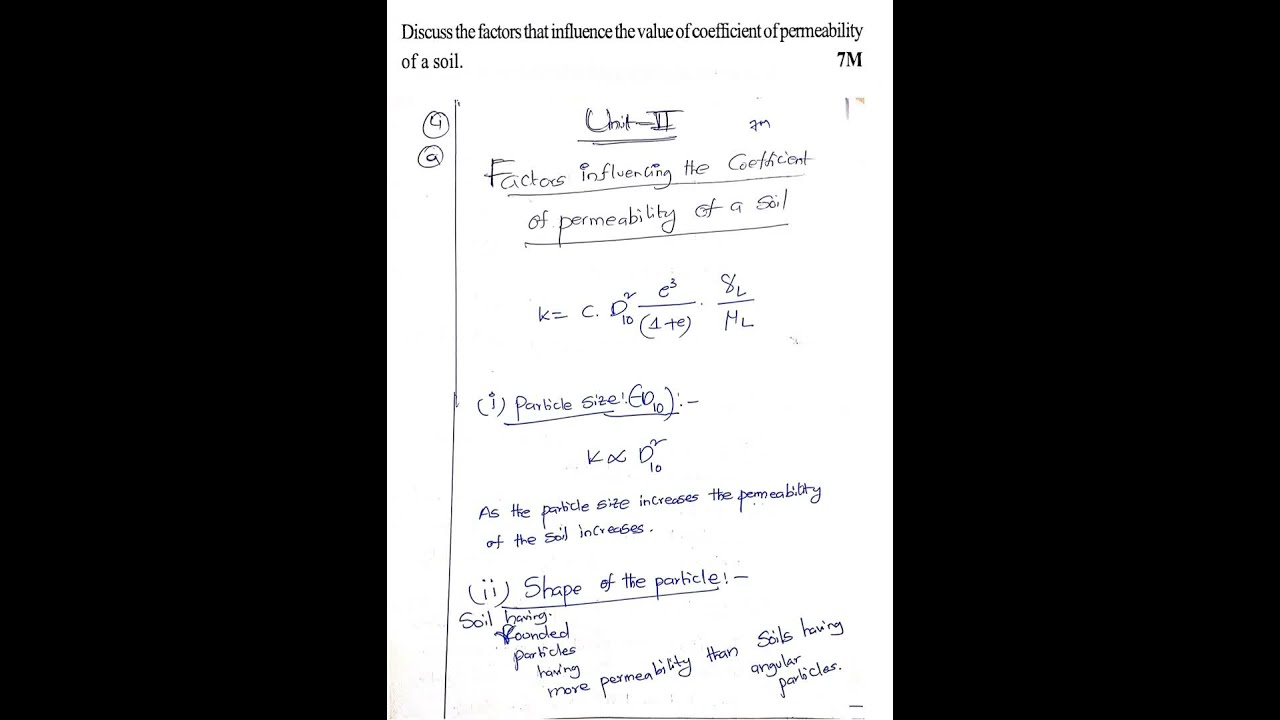 Discuss the factors that influence the value of coefficient of permeability
of a soil. 7M
4
a
Unit-II 7m
Factors influencing the Coefficient
of permeability of a soil
k = C. D₁₀² e³/(1+e) . γL/μL
(i) Particle size:(D₁₀):-
K ∝ D₁₀²
As the particle size increases the permeability
of the soil increases.
(ii) Shape of the particle:-
Soil having
rounded
particles
having
more permeability than soils having
angular
particles.